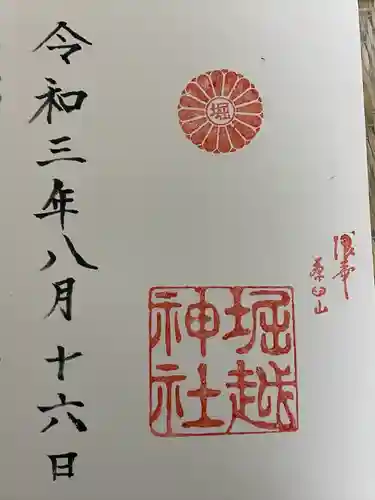 浪華
茶臼山
堀
堀越
神社
令和三年八月十六日